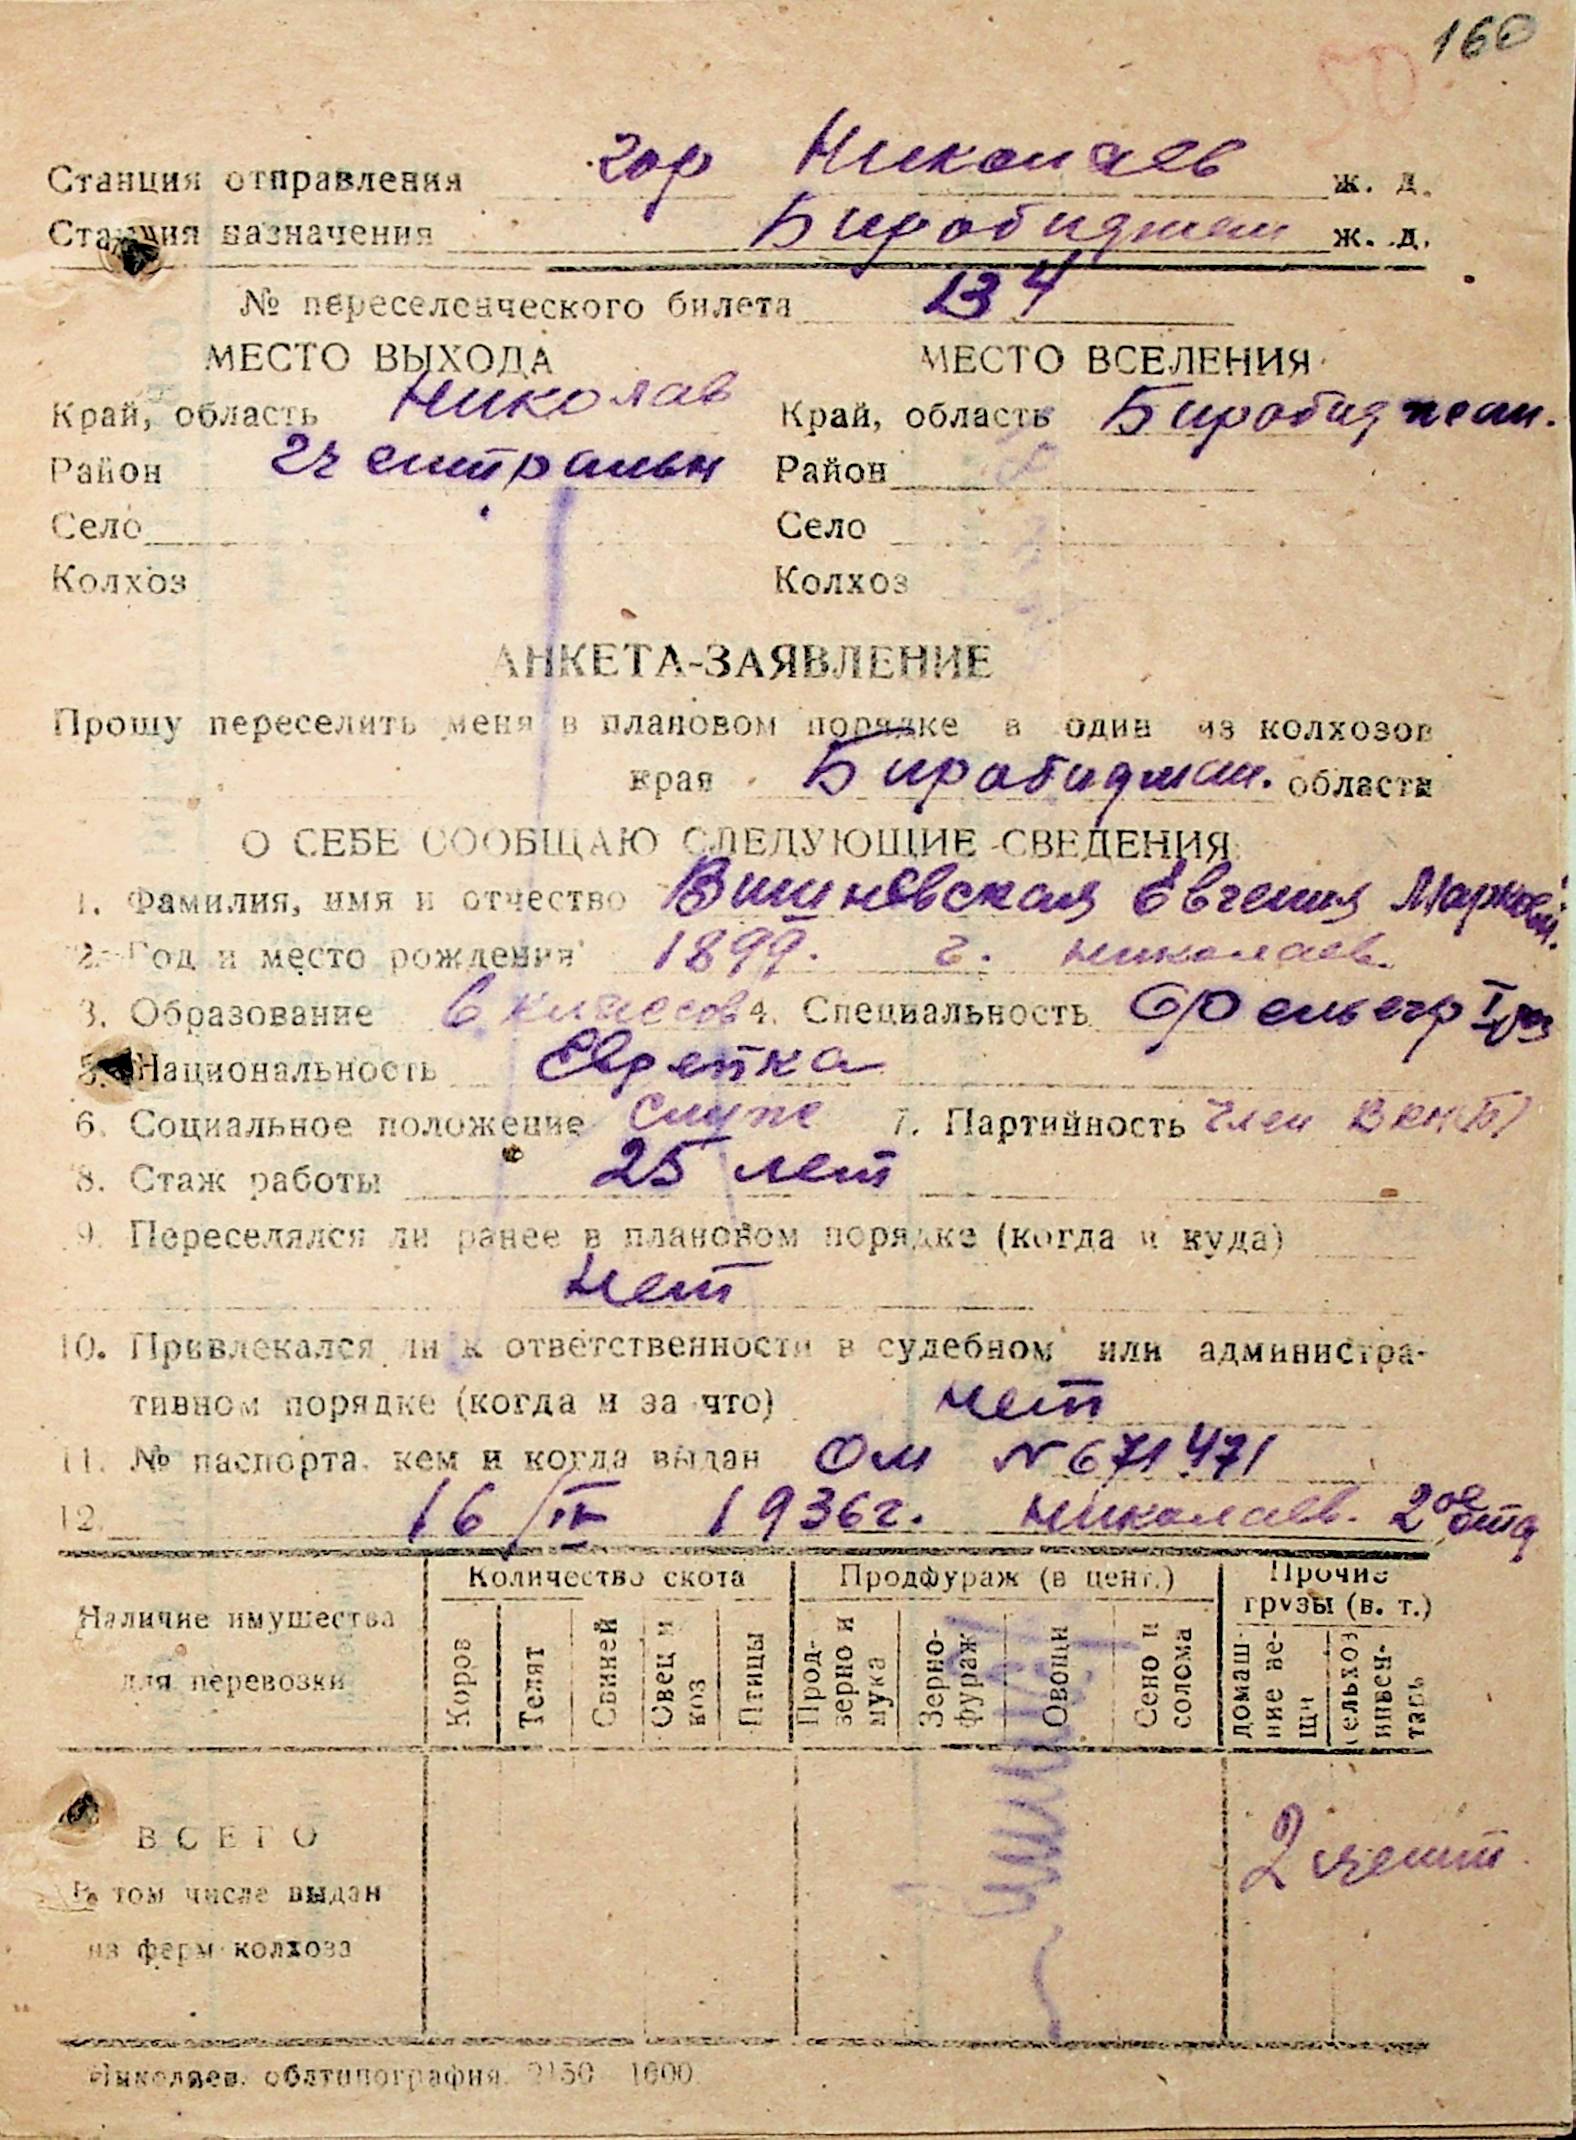 160
Станция отправления гор Николаев ж. д.
Станция назначения Биробиджан ж. д.
№ переселенческого билета 134
МЕСТО ВЫХОДА МЕСТО ВСЕЛЕНИЯ
Край, область Николаев Край, область Биробиджан.
Район Центральн Район
Село Село
Колхоз Колхоз
АНКЕТА-ЗАЯВЛЕНИЕ
Прошу переселить меня в плановом порядке в один из колхозов
края Биробиджан. области
О СЕБЕ СООБЩАЮ СЛЕДУЮЩИЕ СВЕДЕНИЯ:
1. Фамилия, имя и отчество Вишневская Евгения Марковн.
2. Год и место рождения 1899. г. Николаев.
3. Образование 6 классов 4. Специальность Фельдшер
5. Национальность Еврейка
6. Социальное положение служ 7. Партийность член ВКП(б)
8. Стаж работы 25 лет
9. Переселялся ли ранее в плановом порядке (когда и куда)
нет
10. Привлекался ли к ответственности в судебном или администра-
тивном порядке (когда и за что) нет
11. № паспорта, кем и когда выдан ОМ № 671471
12. 16/IV 1936г. Николаев. 2ое отд
Наличие имущества для перевозки
Количество скота Продфураж (в цент.) Прочие грузы (в. т.)
Коров Телят Свиней Овец и коз Птицы Прод-зерно и мука Зерно-фураж Овощи Сено и солома домаш-ние ве-щи сельхоз инвен-тарь
ВСЕГО 2 цент.
В том числе выдан
из ферм колхоза
Николаев. облтипография 2150 1000